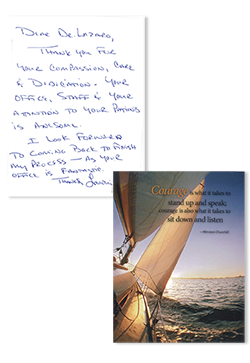 Dear Dr. Lazaro,
Thank you for
your compassion, care
& didication. Your
office, staff & your
attention to your patients
is awesome.
I look forward
to coming back to finish
my process – as your
office is fantastic.
Thanks,
Courage is what it takes to
stand up and speak;
courage is also what it takes to
sit down and listen
–Winston Churchill